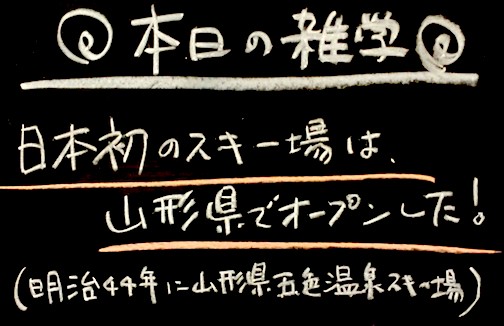 本日の雑学
日本初のスキー場は、
山形県でオープンした!
(明治44年に山形県五色温泉スキー場)